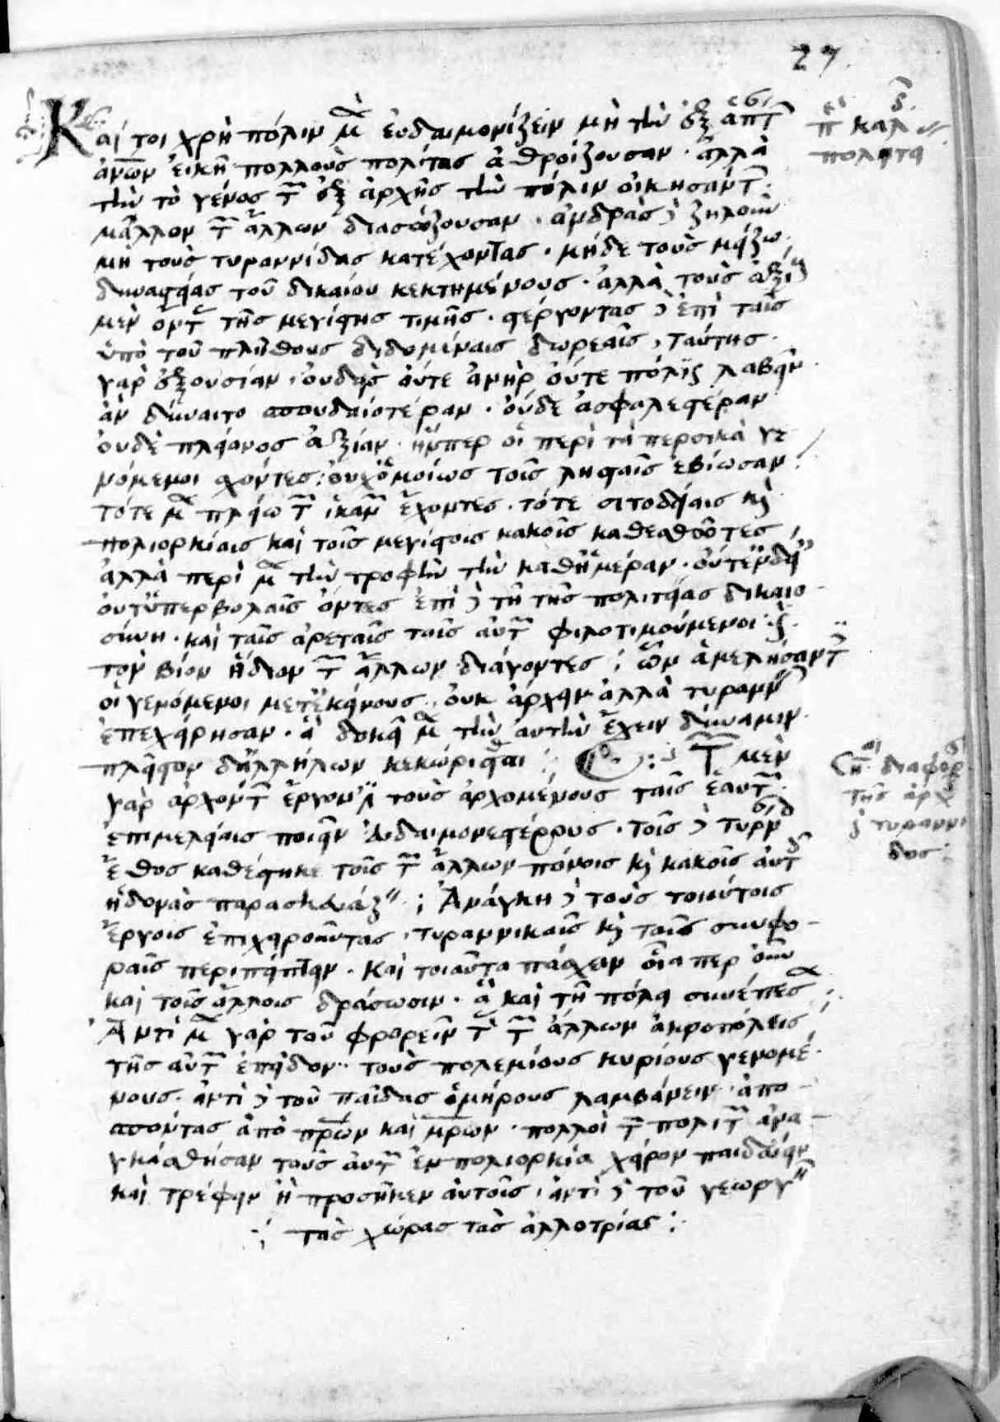 27.
Καί τοι χρὴ πόλιν μὲν εὐδαιμονίζειν μὴ τὴν ἐξ ἁπάντων
ἀνθρώπων εἰκῆ πολλοὺς πολίτας ἀθροίζουσαν· ἀλλὰ
τὴν τὸ γένος τῶν ἐξ ἀρχῆς τὴν πόλιν οἰκησάντων
μᾶλλον τῶν ἄλλων διασώζουσαν· ἄνδρας δὲ ζηλοῦν
μὴ τοὺς τυραννίδας κατέχοντας· μηδὲ τοὺς μείζω
δυναστείας τοῦ δικαίου κεκτημένους· ἀλλὰ τοὺς ἀξίους
μὲν ὄντας τῆς μεγίστης τιμῆς· στέργοντας δὲ ἐπὶ ταῖς
ὑπὸ τοῦ πλήθους διδομέναις δωρεαῖς, ταύτης
γὰρ ἐξουσίαν· οὐδεὶς οὔτε ἀνὴρ οὔτε πόλις λαβεῖν
ἂν δύναιτο σπουδαιοτέραν· οὐδὲ ἀσφαλεστέραν
οὐδὲ πλείονος ἀξίαν· ἥνπερ οἱ περὶ τὰ περσικὰ γε
νόμενοι σχόντες· οὐχ ὁμοίως τοῖς λησταῖς ἐβίωσαν·
τότε μὲν πλείω τῶν ἱκανῶν ἔχοντες· τότε σιτοδείαις καὶ
πολιορκίαις καὶ τοῖς μεγίστοις κακοῖς καθεστῶτες
ἀλλὰ περὶ μὲν τὴν τροφὴν τὴν καθ' ἡμέραν· οὔτ' ἐνδείαις
οὔθ' ὑπερβολαῖς ὄντες ἐπὶ δὲ τῇ τῆς πολιτείας δικαιο-
σύνῃ· καὶ ταῖς ἀρεταῖς ταῖς αὑτῶν φιλοτιμούμενοι· καὶ
τὸν βίον ἥδιον τῶν ἄλλων διάγοντες· ὧν ἀμελήσαντες
οἱ γενόμενοι μετ' ἐκείνους, οὐκ ἄρχειν ἀλλὰ τυραννεῖν
ἐπεχείρησαν· ἃ δοκεῖ μὲν τὴν αὐτὴν ἔχειν δύναμιν
πλεῖστον δ' ἀλλήλων κεχώρισται· τῶν μὲν
γὰρ ἀρχόντων ἔργον ἐστὶ τοὺς ἀρχομένους ταῖς ἑαυτῶν
ἐπιμελείαις ποιεῖν εὐδαιμονεστέρους· τοῖς δὲ τυράννοις
ἔθος καθέστηκε τοῖς τῶν ἄλλων πόνοις καὶ κακοῖς αὑτοῖς
ἡδονὰς παρασκευάζειν· Ἀνάγκη δὲ τοὺς τοιούτοις
ἔργοις ἐπιχειροῦντας, τυραννικαῖς καὶ ταῖς συμφο-
ραῖς περιπίπτειν· καὶ τοιαῦτα πάσχειν οἷά περ ἂν
καὶ τοῖς ἄλλοις δράσωσιν· ἃ καὶ τῇ πόλει συνέπεσεν
Ἀντὶ μὲν γὰρ τοῦ φρουρεῖν τὰς τῶν ἄλλων ἀκροπόλεις
τῆς αὑτῶν ἐπεῖδον τοὺς πολεμίους κυρίους γενομέ
νους· ἀντὶ δὲ τοῦ παῖδας ὁμήρους λαμβάνειν ἀπο-
σπῶντας ἀπὸ πατέρων καὶ μητέρων· πολλοὶ τῶν πολιτῶν ἠνα-
γκάσθησαν τοὺς αὑτῶν ἐν πολιορκίᾳ χεῖρον παιδεύειν
καὶ τρέφειν ἢ προσῆκεν αὐτοῖς· ἀντὶ δὲ τοῦ γεωργεῖν
τὰς χώρας τὰς ἀλλοτρίας:
διαφορ
τῆς ἀρχ
καὶ τυραννί
δος